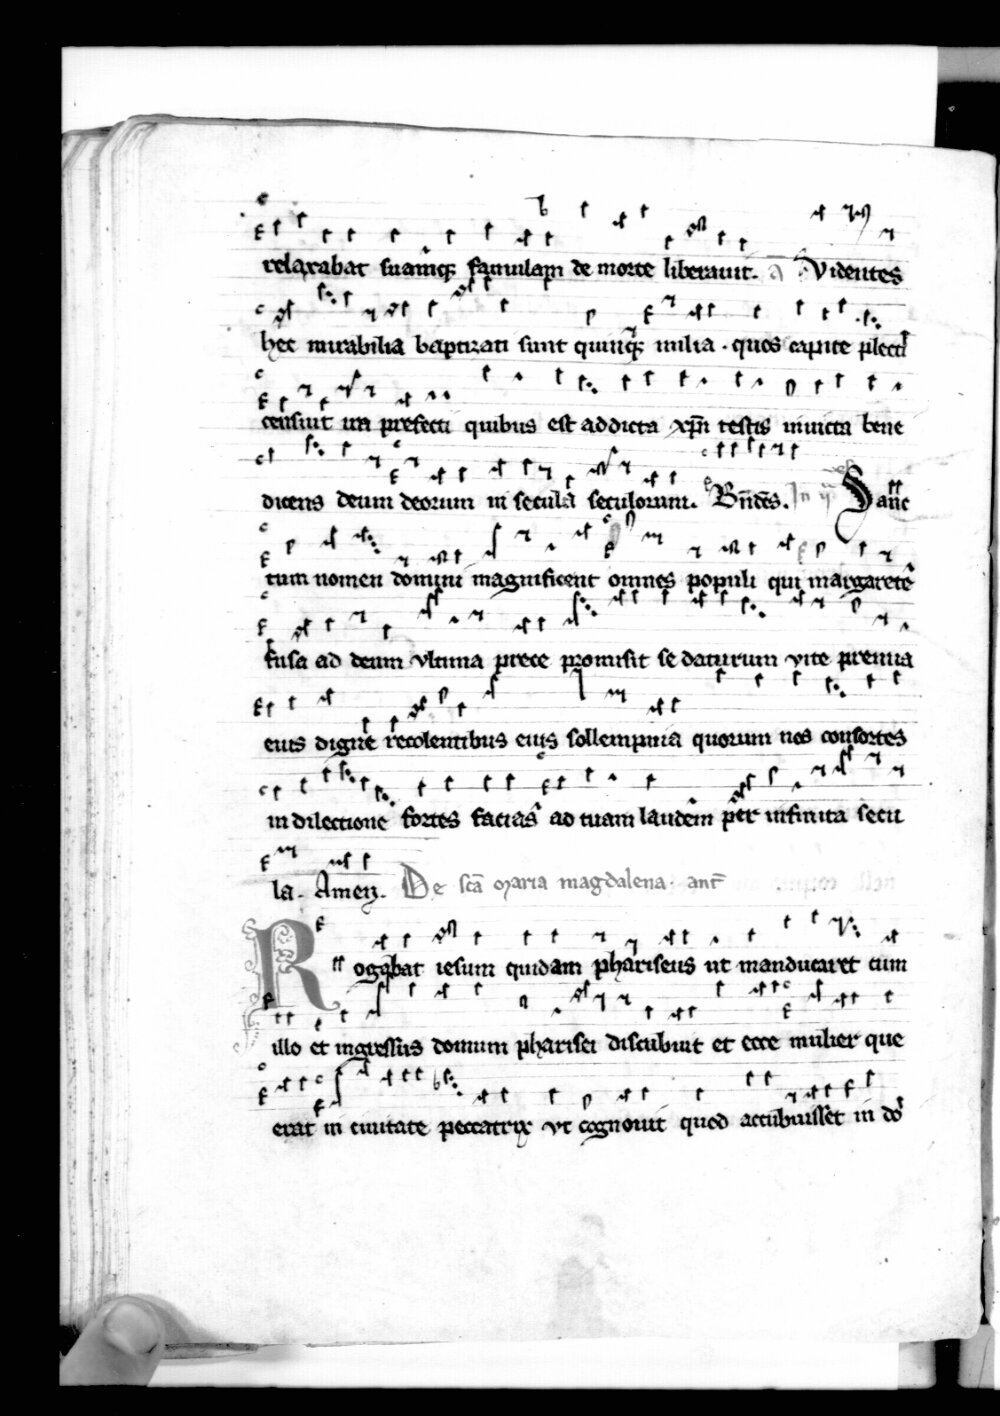 relaxabat suamq; famulam de morte liberauit. a Videntes
hec mirabilia baptizati sunt quinq; milia · quos capite plecti
censiuit urı prefecti quibus est addicta xp̄ı testis inuicta bene
dicens deum deorum in secula seculorum. Bn̄dc̄s. In Sanc
tum nomen domini magnificent omnes populi qui margarete
fusa ad deum vltima prece promisit se daturum vite premia
eius digne recolentibus eius sollempnia quorum nos consortes
in dilectione fortes facias ad tuam laudem per infinita secu
la. Amen. De sc̄a maria magdalena. ant̄
Rogabat iesum quidam phariseus ut manducaret cum
illo et ingressus domum pharisei discubuit et ecce mulier que
erat in ciuitate peccatrix vt cognouit quod accubuisset in do